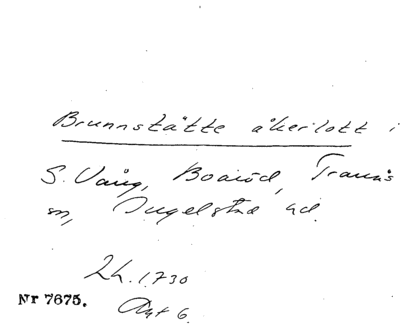 Brunnstätte åkerlott i
S. Vång, Boaröd, Tranås
sn, Ingelstad hd.
2h. 1730
Nr 7675. Akt 6